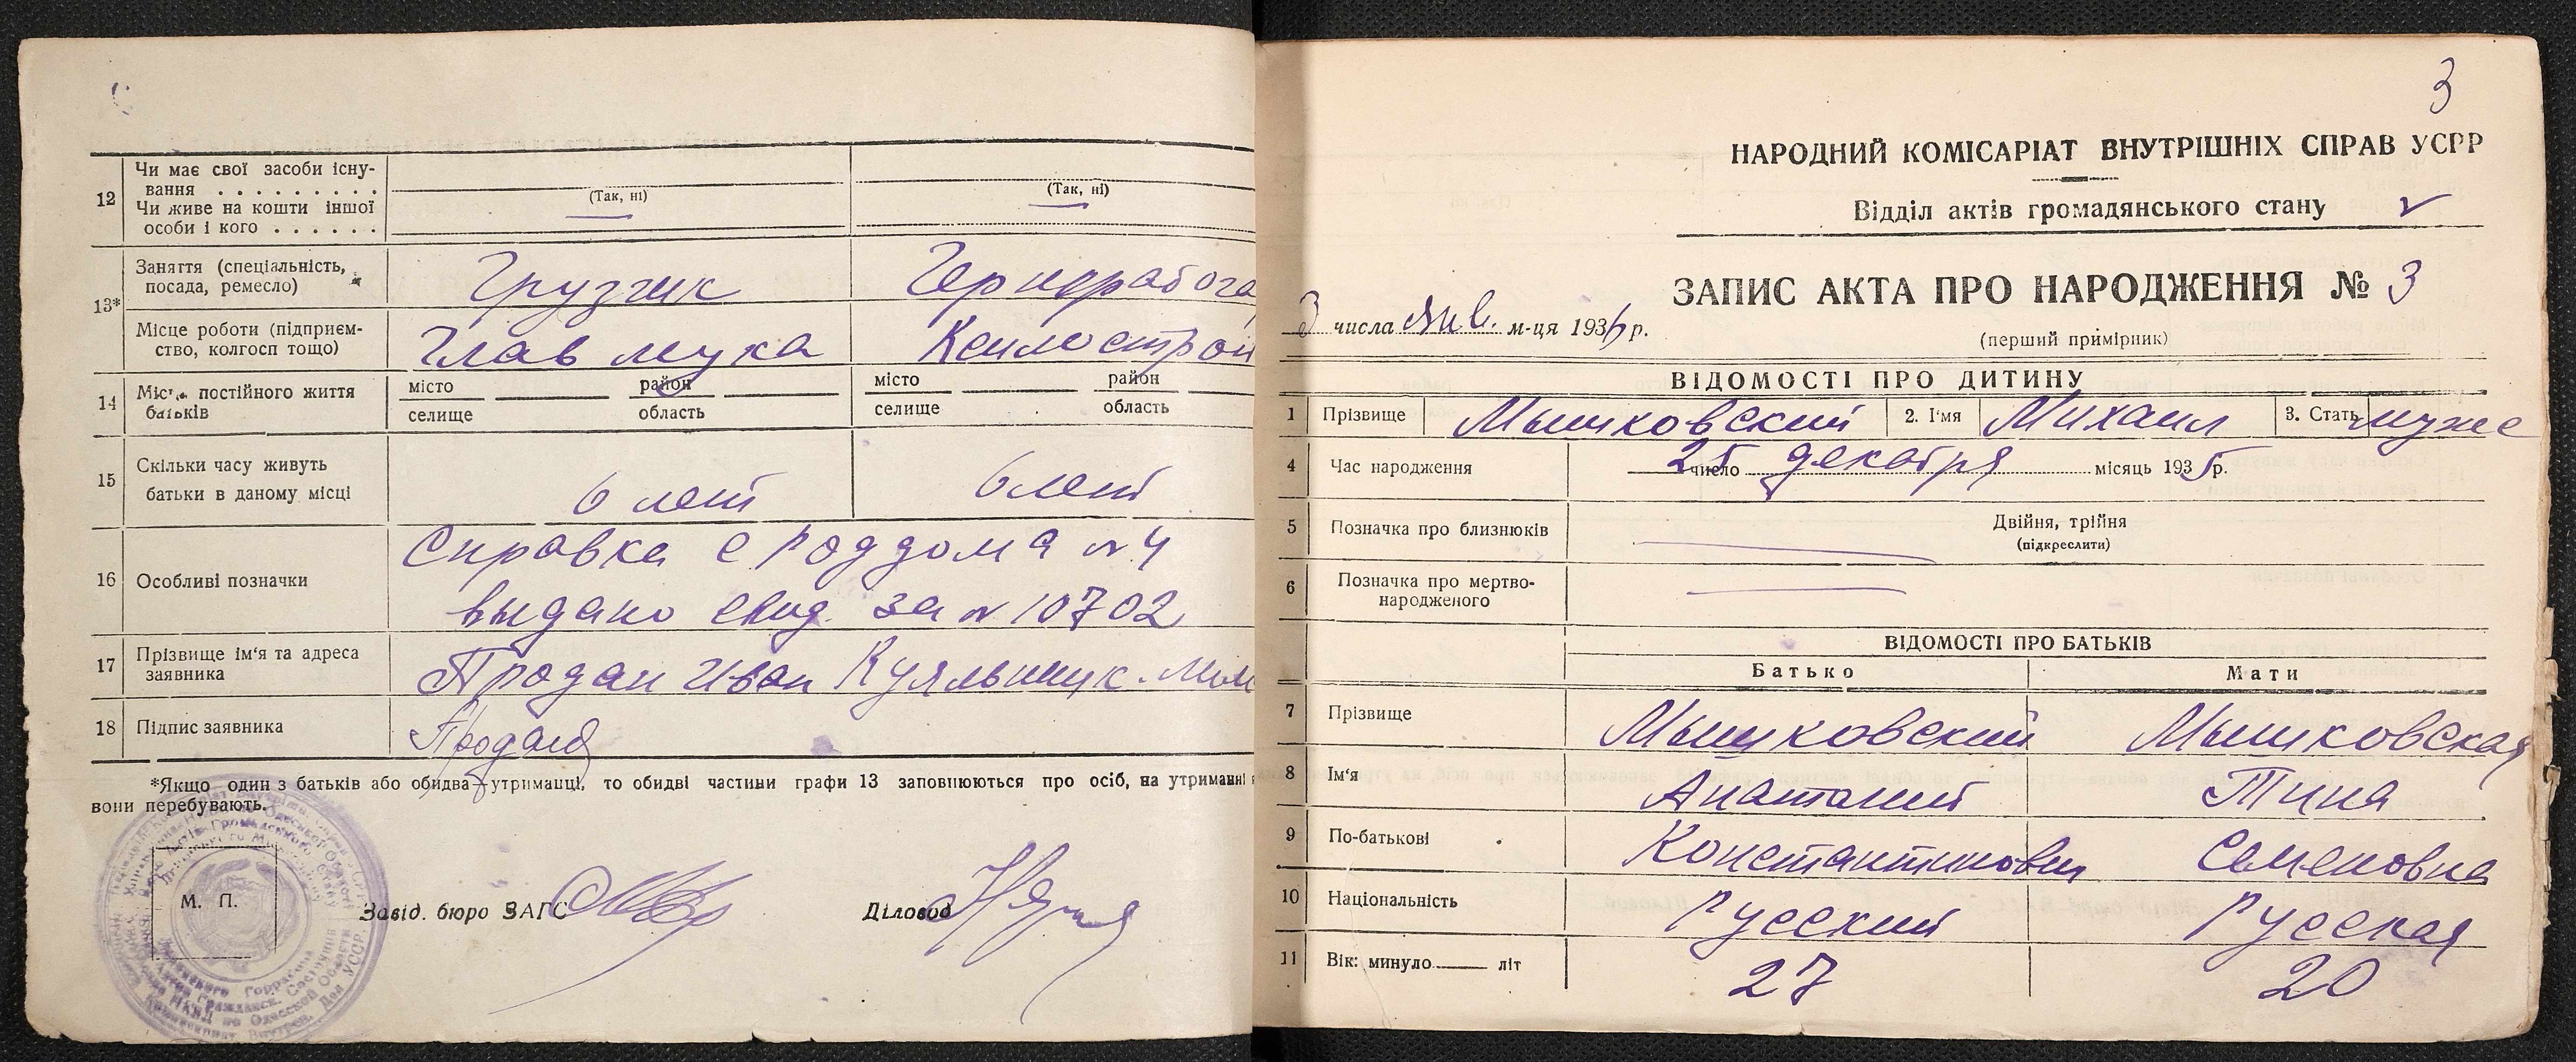 12
Чи має свої засоби існу-
вання . . . . . . . . .
Чи живе на кошти іншої
особи і кого . . . . . .
(Так, ні)
(Так, ні)
13*
Заняття (спеціальність,
посада, ремесло)
Грузчик
Чернорабоча
Місце роботи (підприєм-
ство, колгосп тощо)
Глав мука
14
постійного життя
батьків
місто район
селище область
місто район
селище область
15
Скільки часу живуть
батьки в даному місці
6 лет
6 лет
16
Особливі позначки
Справка с Роддома № 4
выдано свид. за № 10702
17
Прізвище ім'я та адреса
заявника
Продан Иван Куяльник.
18
Підпис заявника
Продан
*Якщо один з батьків або обидва—утриманці, то обидві частини графи 13 заповнюються про осіб, на утриманні
вони перебувають.
М. П.
Завід. бюро ЗАГС
Діловод
3
НАРОДНИЙ КОМІСАРІАТ ВНУТРІШНІХ СПРАВ УСРР
Відділ актів громадянського стану
ЗАПИС АКТА ПРО НАРОДЖЕННЯ № 3
3 числа Янв. м-ця 1936 р.
(перший примірник)
ВІДОМОСТІ ПРО ДИТИНУ
1 Прізвище Мышковский 2. І'мя Михаил 3. Стать мужс
4 Час народження 25 число декабря місяць 1935 р.
5 Позначка про близнюків Двійня, трійня
(підкреслити)
6 Позначка про мертво-
народженого
ВІДОМОСТІ ПРО БАТЬКІВ
Батько Мати
7 Прізвище Мышковский Мышковская
8 Ім'я Анатолий Тина
9 По-батькові Константинович Семеновна
10 Національність Русский Русская
11 Вік: минуло літ 27 20